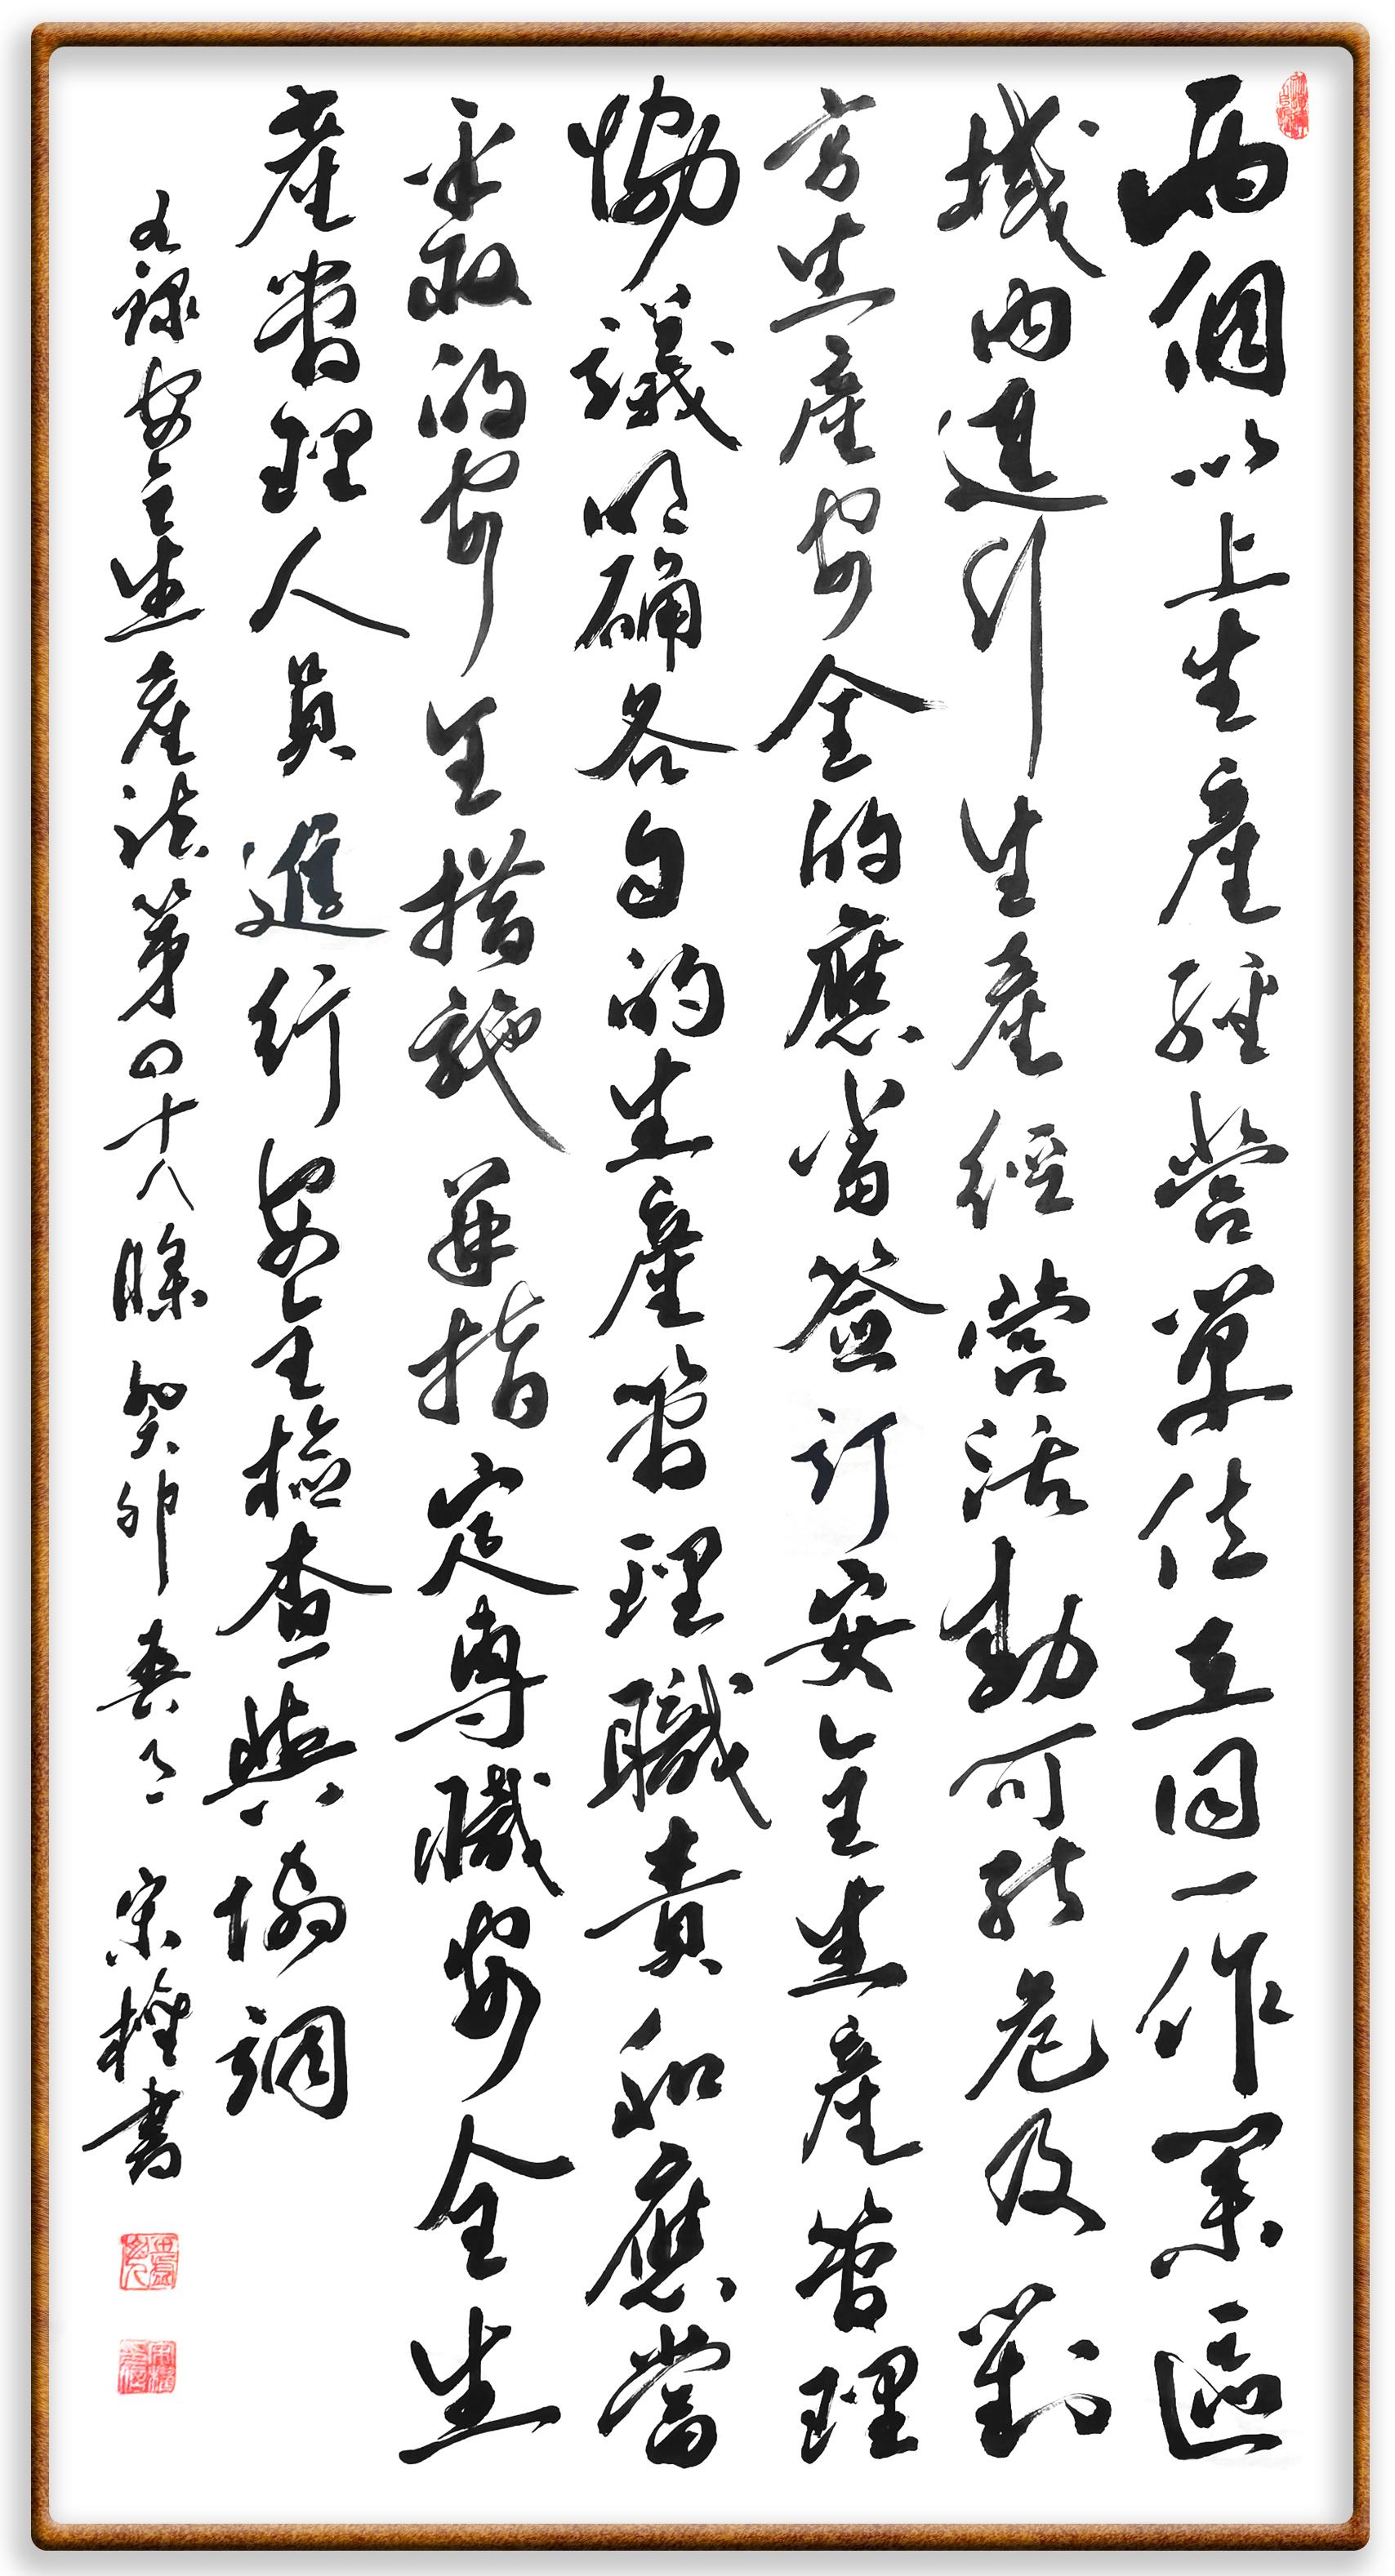 兩個以上生產經營單位在同一作業區
域内進行生產經營活動可能危及對
方生產安全的應當签訂安全生產管理
恊議明確各自的生產管理職責和應當
采取的安全措施並指定專職安全生
產管理人員進行安全檢查與協調
右録安全生產法第四十八條 癸卯春 宋權書